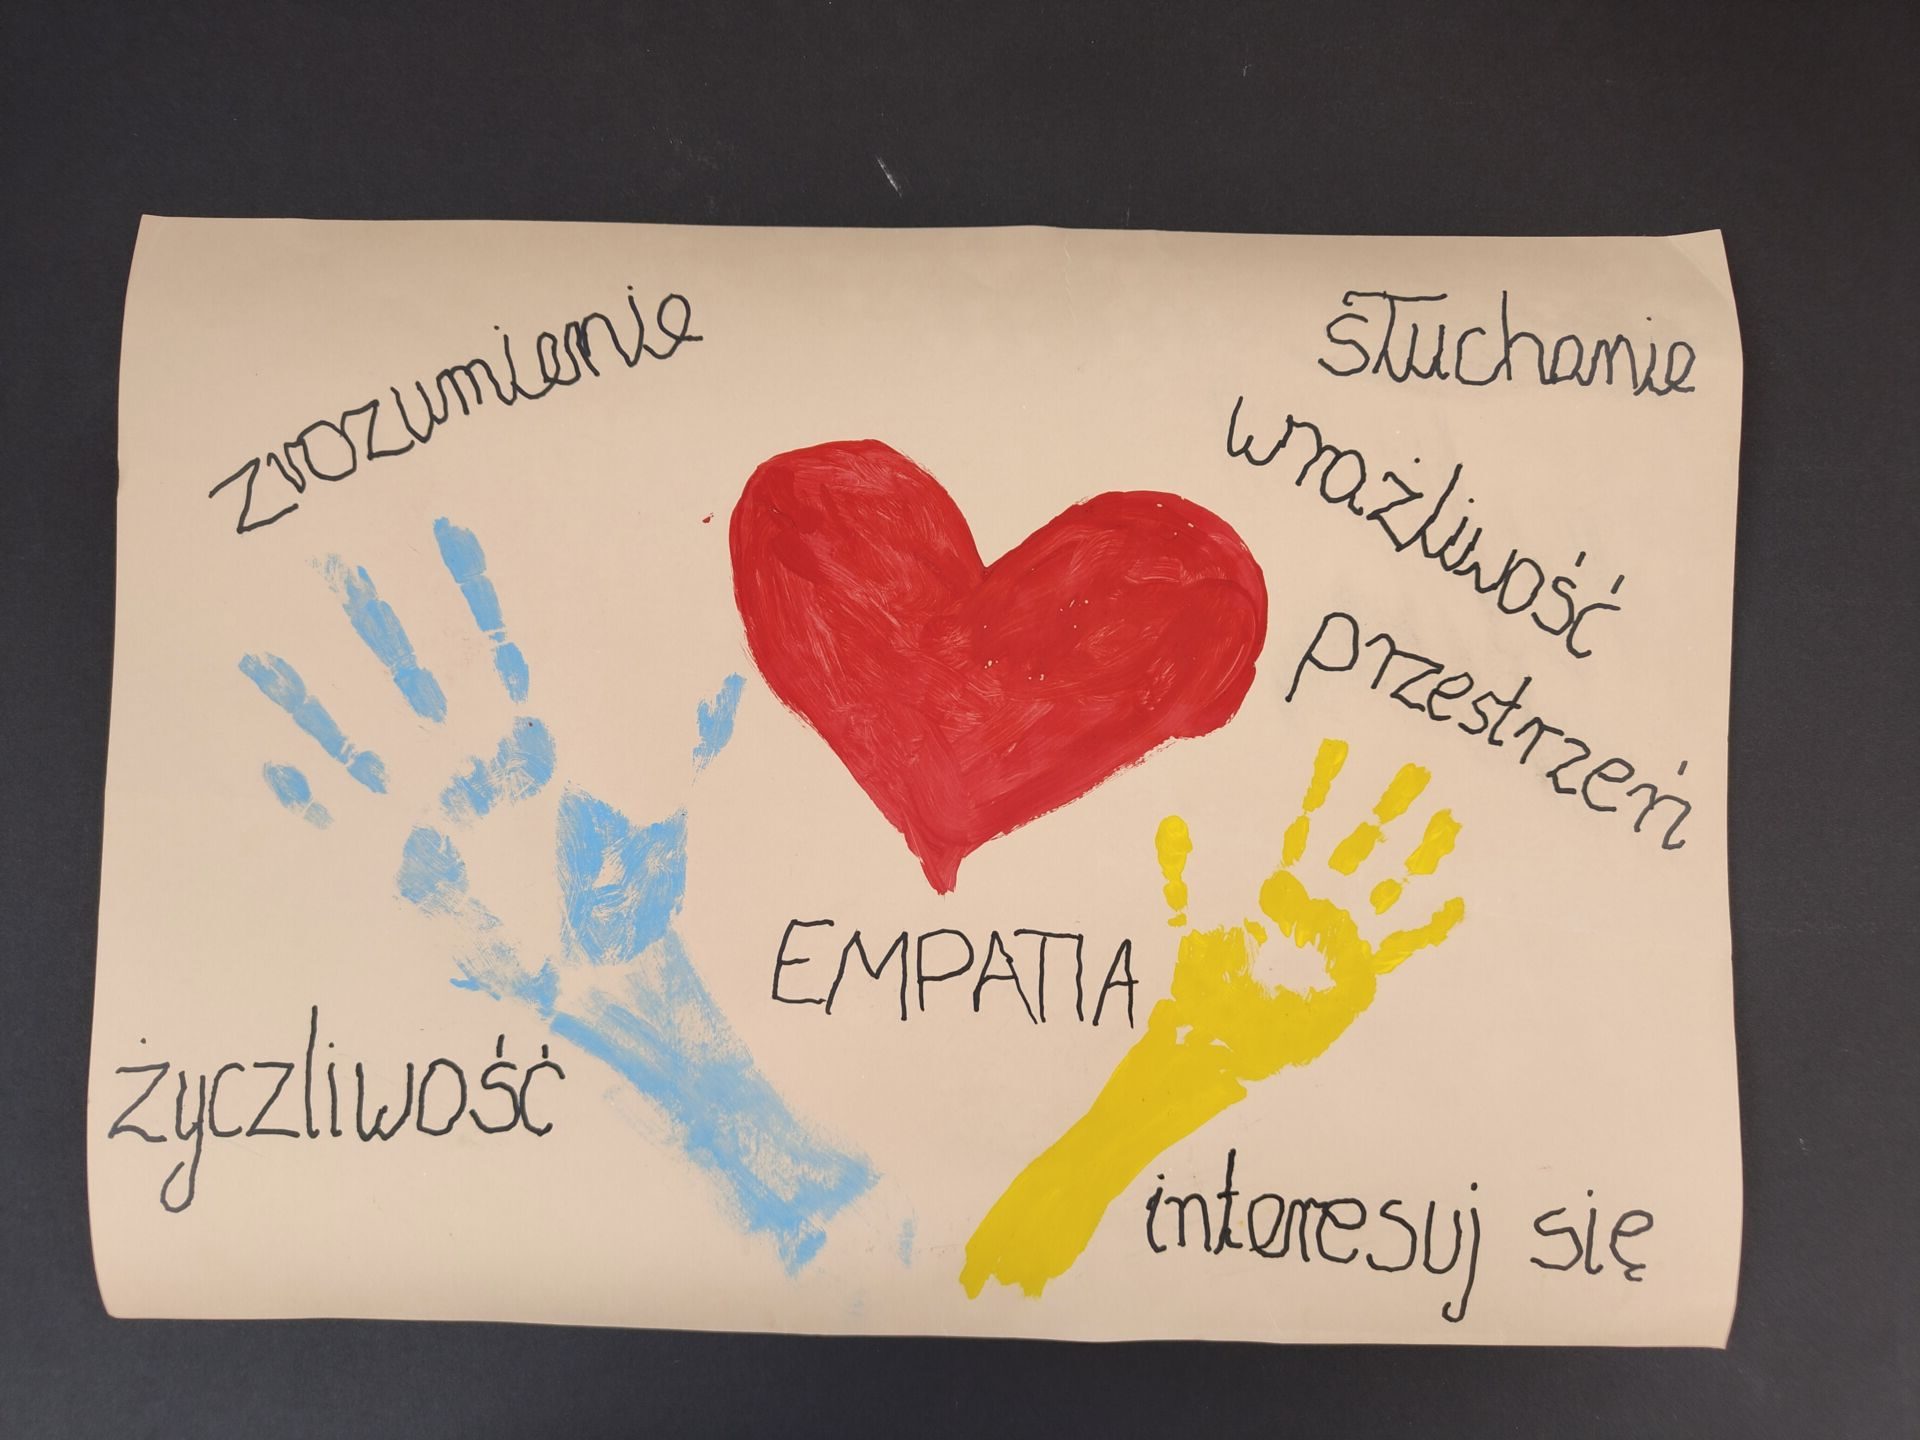 zrozumienie
słuchanie
wrażliwość
przestrzeń
EMPATIA
życzliwość
interesuj się